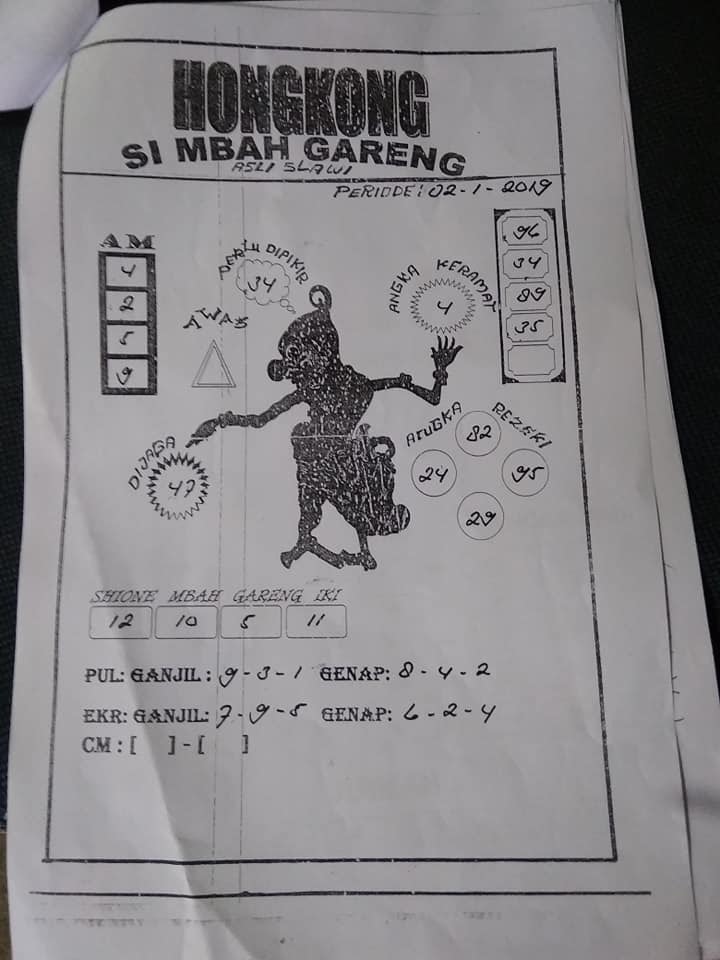 HONGKONG
SI MBAH GARENG
ASLI SLAWI
PERIODE: 02-1-2019
AM
4
2
5
9
PERLU DIPIKIR
34
AWAS
ANGKA KERAMAT
4
96
34
89
35
DIJAGA
47
ANGKA REZEKI
82
24
95
29
SHIONE MBAH GARENG IKI
12 10 5 11
PUL: GANJIL: 9-3-1 GENAP: 8-4-2
EKR: GANJIL: 7-9-5 GENAP: 6-2-4
CM : [ ] - [ ]